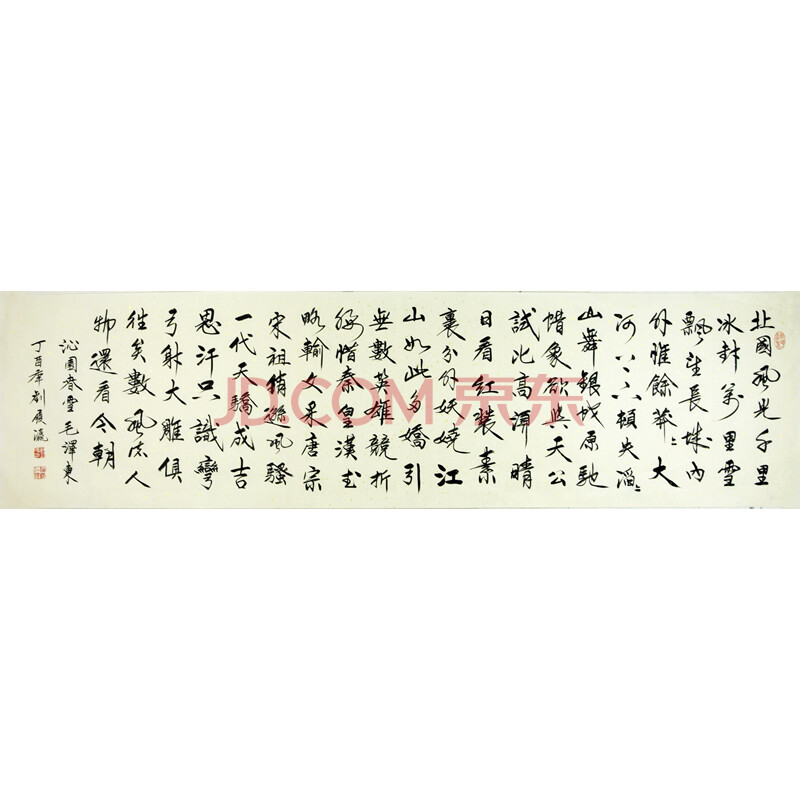 北國風光千里
冰封萬里雪
飄望長城內
外惟餘莽〻大
河上下頓失滔〻
山舞銀蛇原馳
蜡象欲與天公
試比高須晴
日看紅裝素
裹分外妖嬈江
山如此多嬌引
無數英雄競折
腰惜秦皇漢武
略輸文采唐宗
宋祖稍遜風騷
一代天驕成吉
思汗只識彎
弓射大雕俱
往矣數風流人
物還看今朝
沁園春雪毛澤東
丁酉年劉
JD.COM 京东